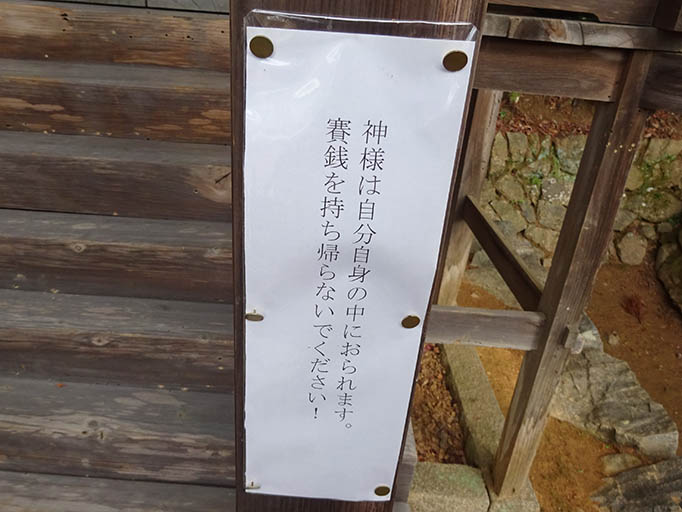 神様は自分自身の中におられます。
賽銭を持ち帰らないでください！